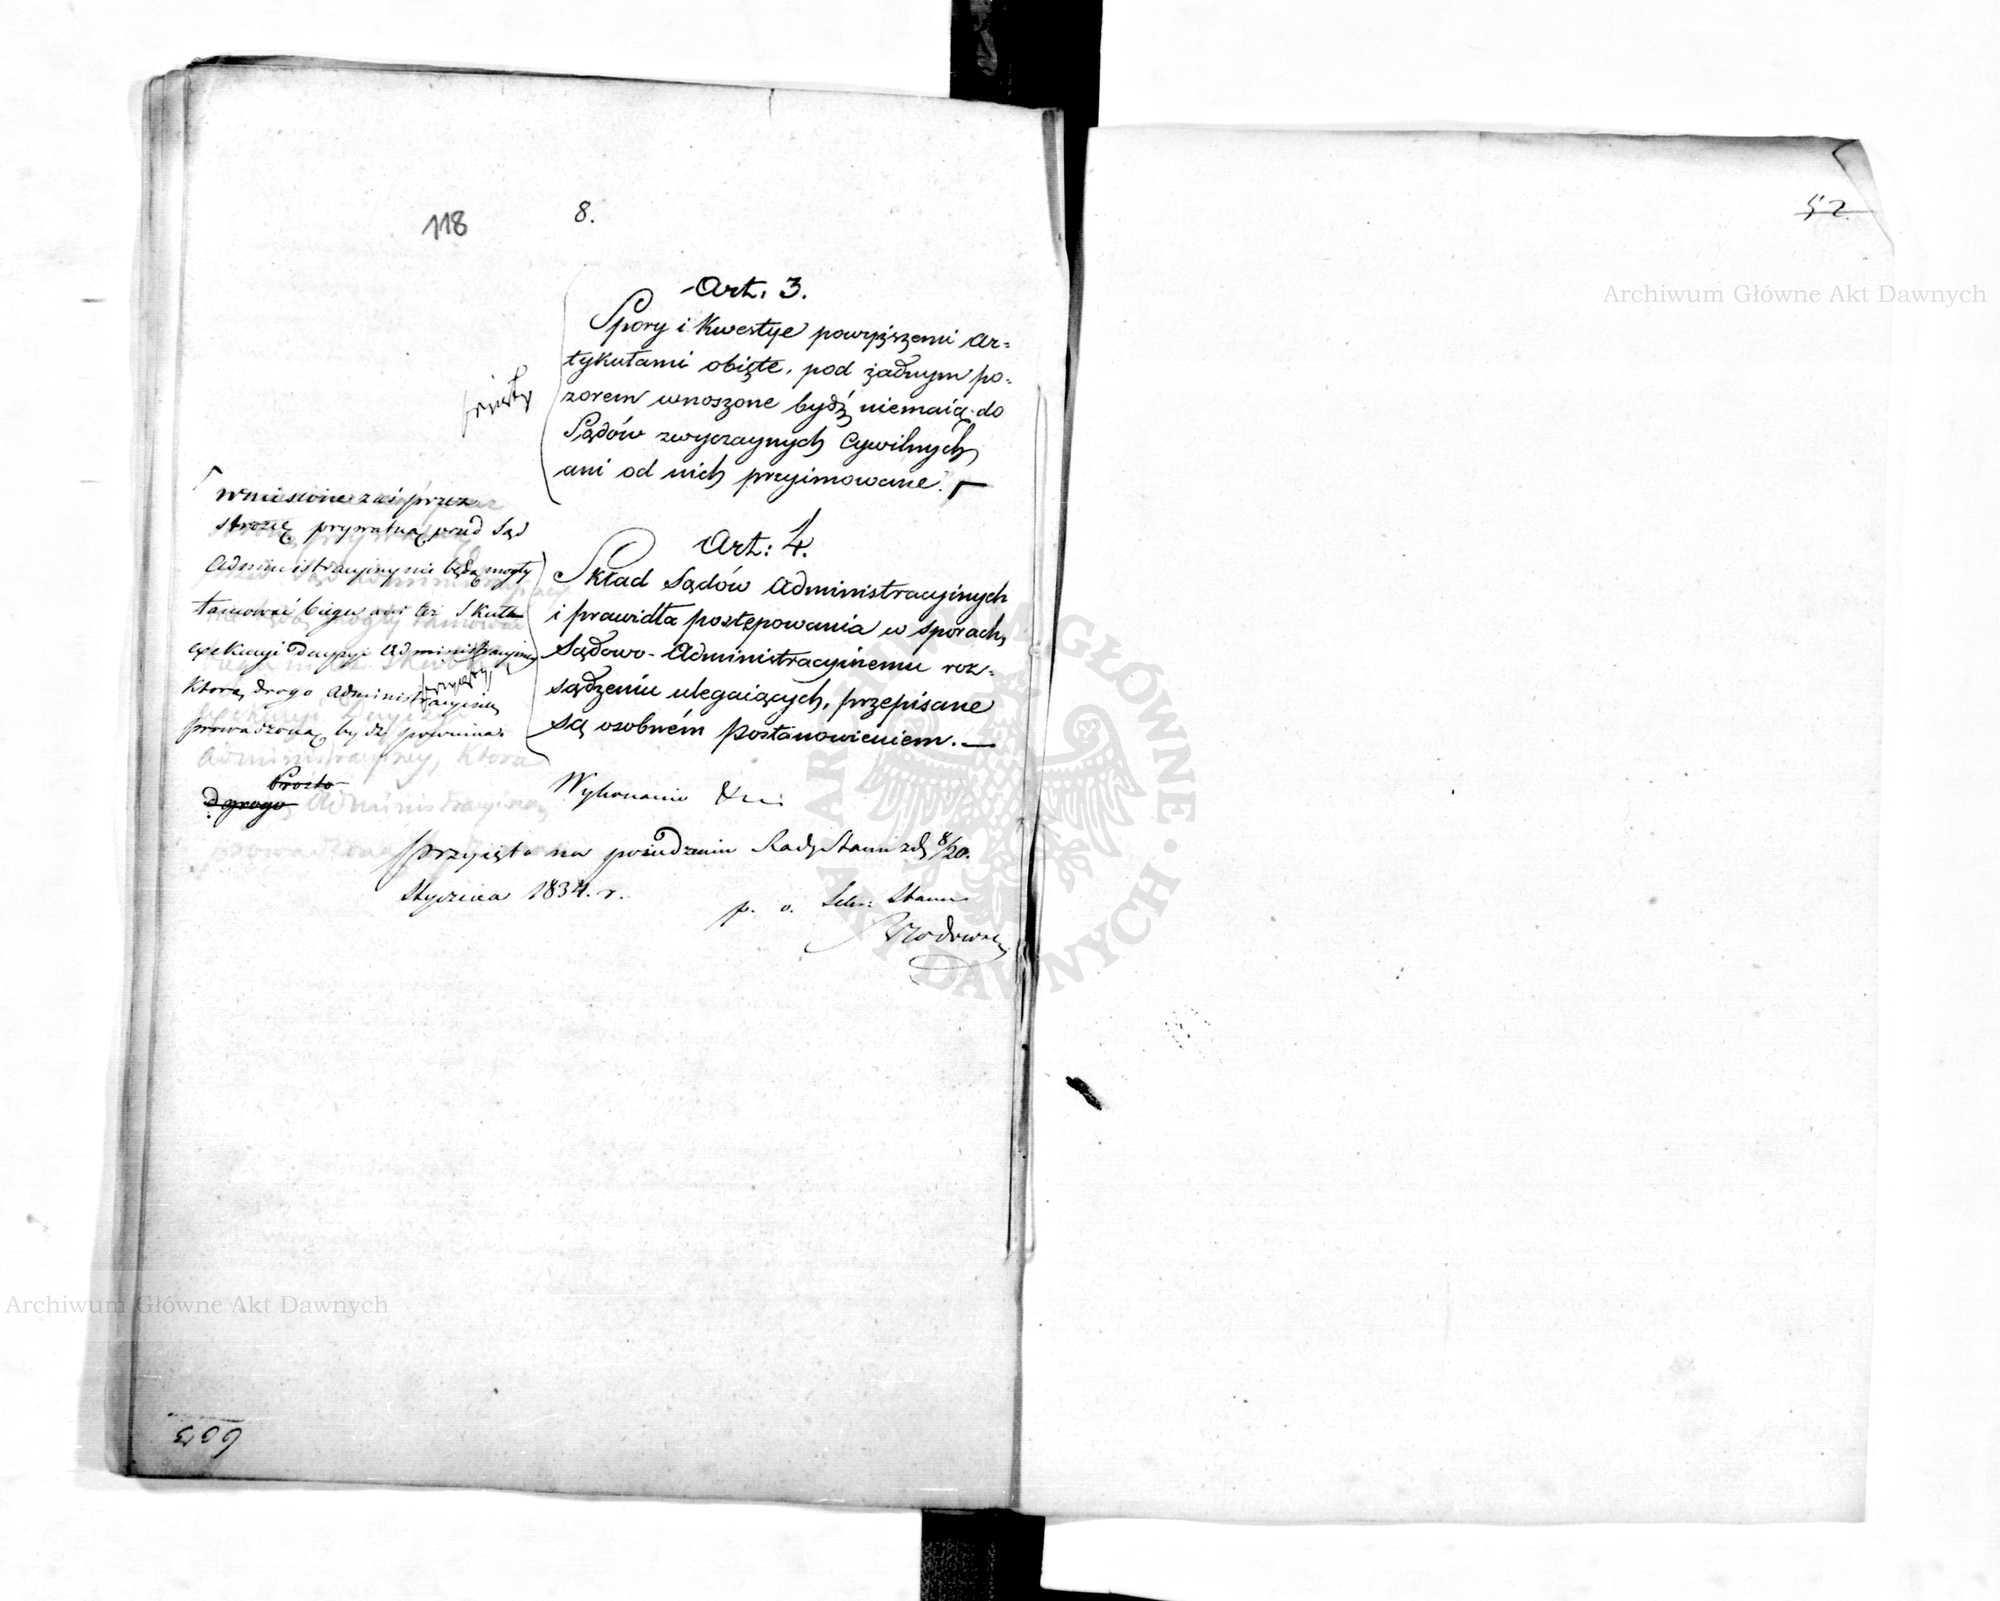 118
8.
Art: 3.
Spory i Kwestye powyższemi Ar=
tykułami obięte, pod żadnym po=
zorem wnoszone bydź niemaią do
Sądów zwyczaynych Cywilnych
ani od nich przyimowane.
przyięty
wniesione zaś przez
stronę prywatną przed Sąd
Administracyiny nie będą mogły
tamować biegu ani też Skutku
exekucyi Decyzyi Administracyiney
która drogą Administracyiną
prowadzona bydź powinna
Prosto
drogo
Art: 4.
Skład Sądów Administracyinych
i prawidła postępowania w sporach,
Sądowo-Administracyinemu roz=
sądzeniu ulegaiących, przepisane
są osobném postanowieniem.
przyięty
Wykonanie &c:
Przyięto na posiedzeniu Rady Stanu z d. 8/20.
Stycznia 1834. r.
p. o. Sekr: Stanu
603
52.
Archiwum Główne Akt Dawnych
Archiwum Główne Akt Dawnych
ARCHIWUM GŁÓWNE AKT DAWNYCH